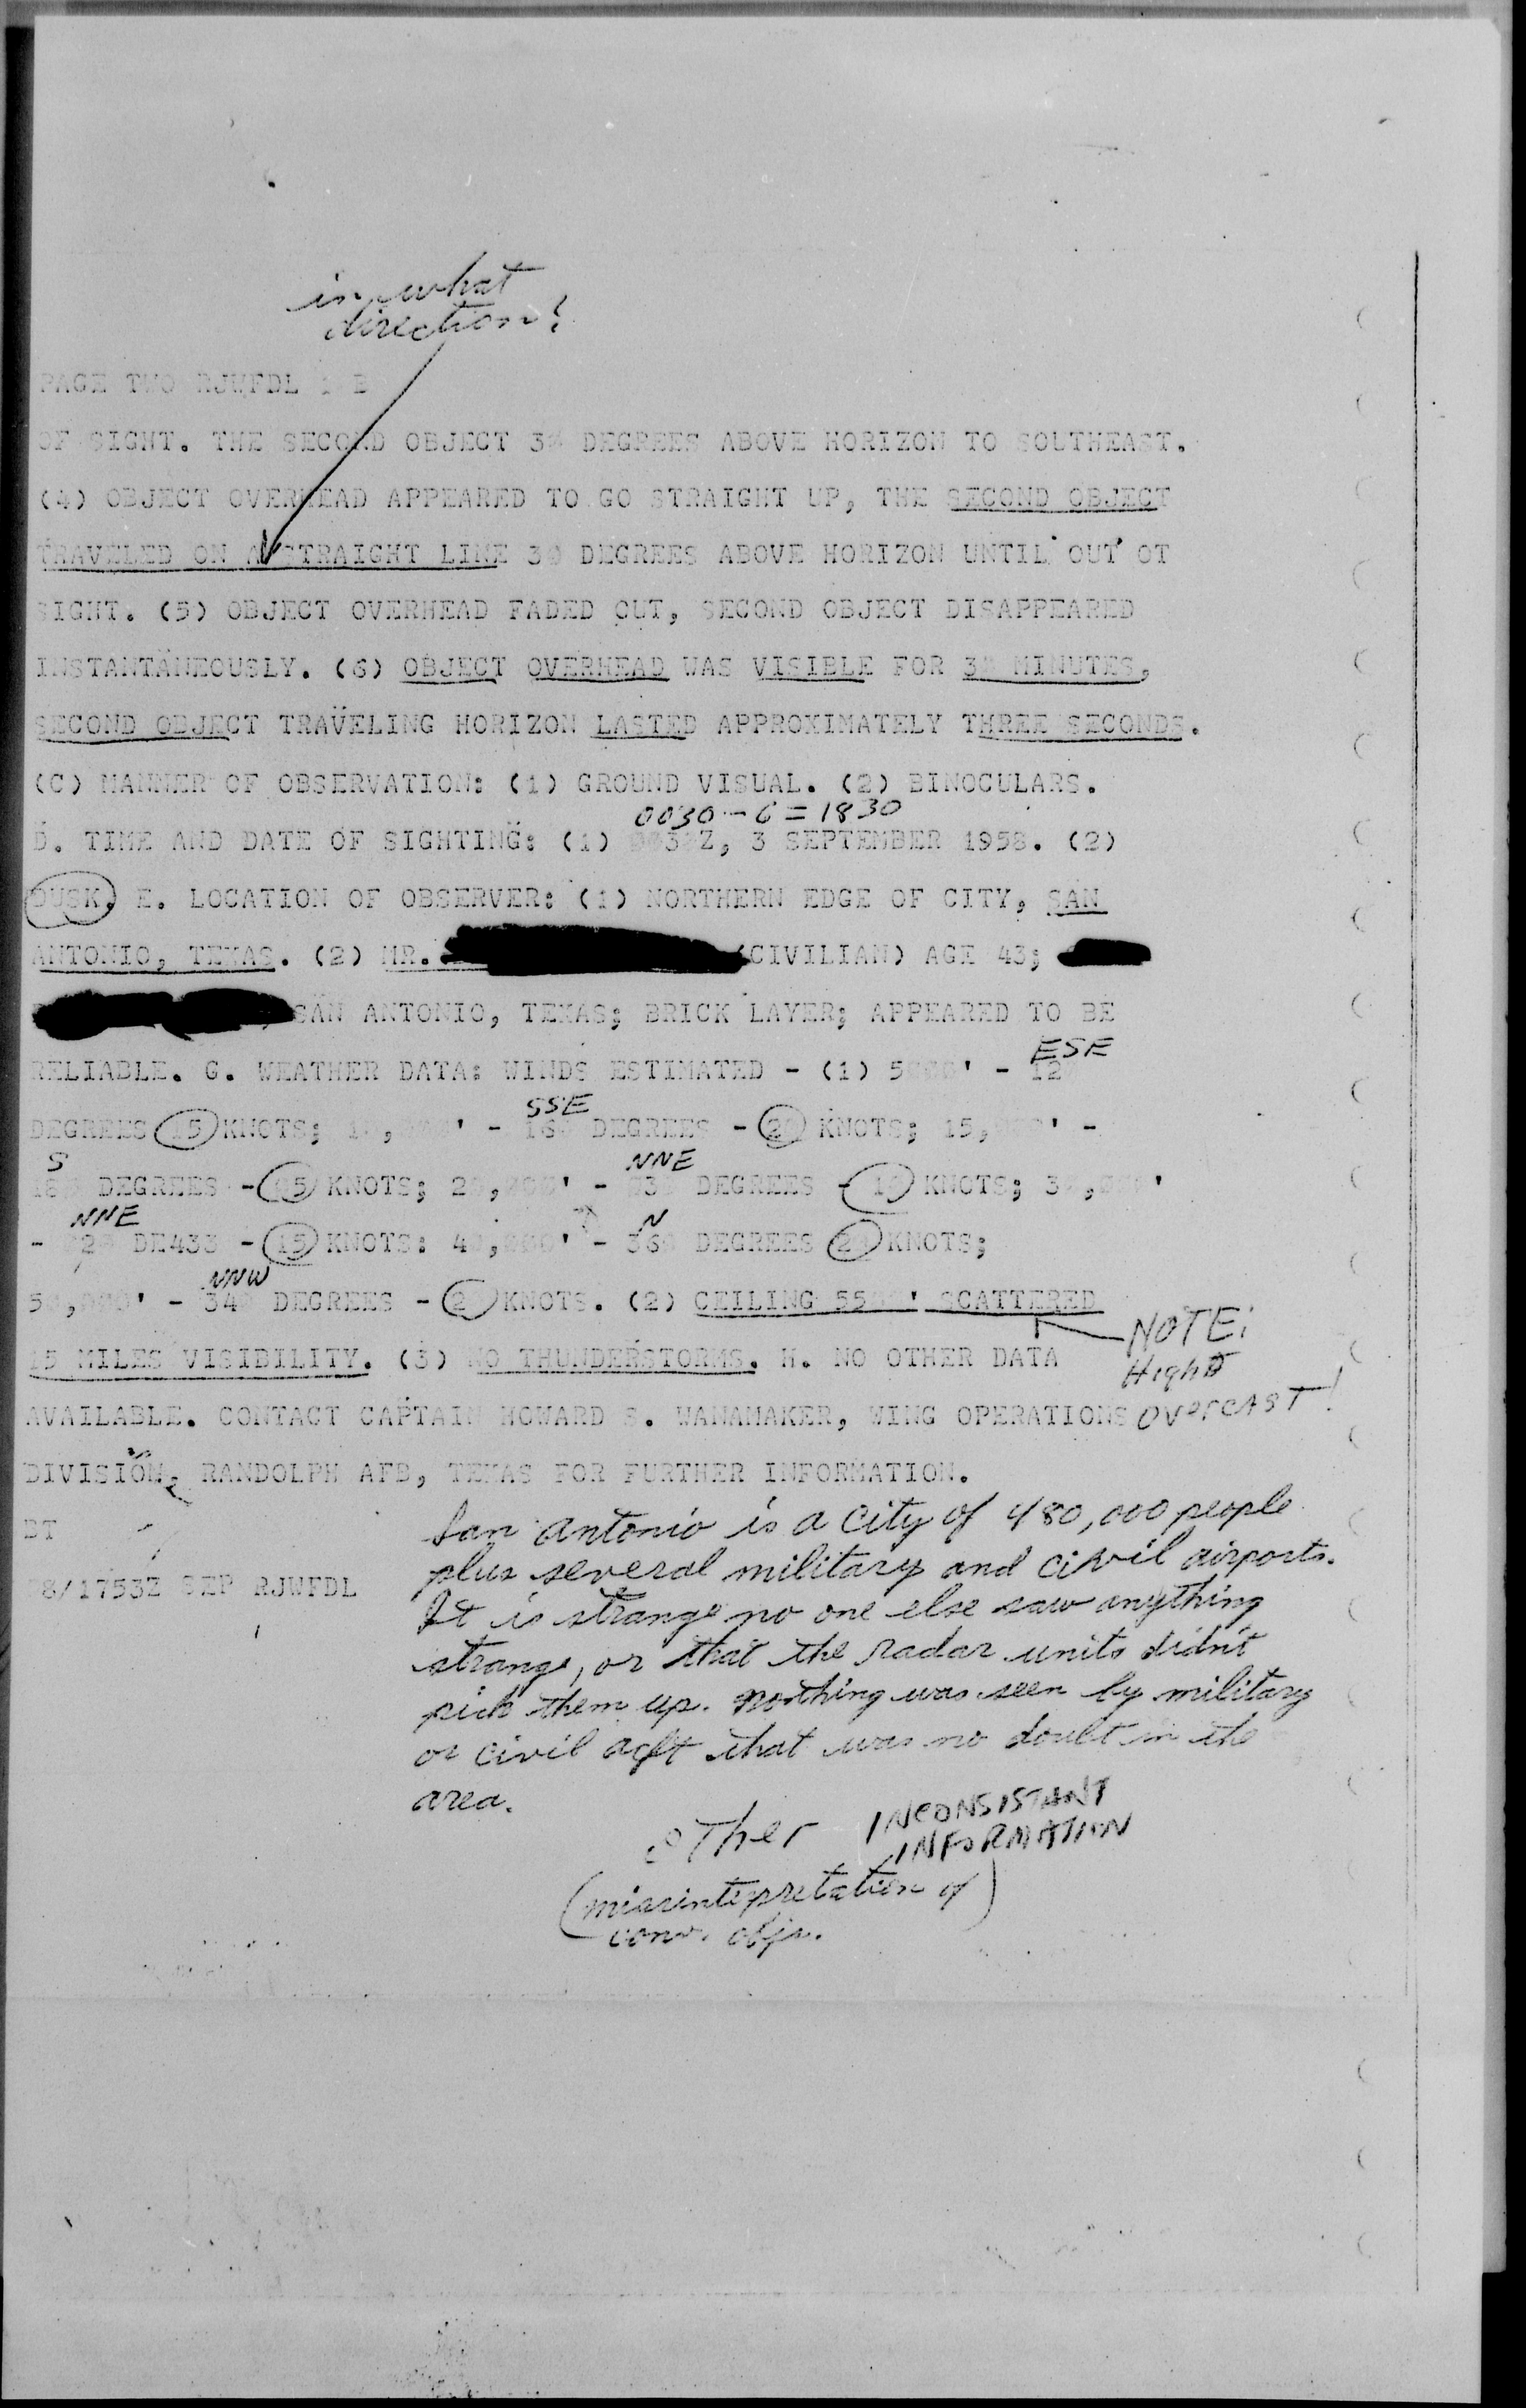 in what
direction?
PAGE TWO RJWFDL B
OF SIGHT. THE SECOND OBJECT 30 DEGREES ABOVE HORIZON TO SOUTHEAST.
(4) OBJECT OVERHEAD APPEARED TO GO STRAIGHT UP, THE SECOND OBJECT
TRAVELED ON A STRAIGHT LINE 30 DEGREES ABOVE HORIZON UNTIL OUT OT
SIGHT. (5) OBJECT OVERHEAD FADED OUT, SECOND OBJECT DISAPPEARED
INSTANTANEOUSLY. (6) OBJECT OVERHEAD WAS VISIBLE FOR 30 MINUTES,
SECOND OBJECT TRAVELING HORIZON LASTED APPROXIMATELY THREE SECONDS.
(C) MANNER OF OBSERVATION: (1) GROUND VISUAL. (2) BINOCULARS.
0030 - 6 = 1830
D. TIME AND DATE OF SIGHTING: (1) 0030Z, 3 SEPTEMBER 1958. (2)
DUSK. E. LOCATION OF OBSERVER: (1) NORTHERN EDGE OF CITY, SAN
ANTONIO, TEXAS. (2) MR. (CIVILIAN) AGE 43;
SAN ANTONIO, TEXAS; BRICK LAYER; APPEARED TO BE
ESE
RELIABLE. G. WEATHER DATA: WINDS ESTIMATED - (1) 5000' - 120
SSE
DEGREES 15 KNOTS; 10,000' - 160 DEGREES - 20 KNOTS; 15,000' -
S NNE
180 DEGREES - 05 KNOTS; 20,000' - 030 DEGREES - 10 KNOTS; 30,000'
NNE N
- 020 DE433 - 15 KNOTS: 40,000' - 360 DEGREES 20 KNOTS;
NNW
50,000' - 340 DEGREES - 20 KNOTS. (2) CEILING 5500' SCATTERED
NOTE:
15 MILES VISIBILITY. (3) NO THUNDERSTORMS. H. NO OTHER DATA
Hight
AVAILABLE. CONTACT CAPTAIN HOWARD S. WANAMAKER, WING OPERATIONS OVERCAST!
DIVISION, RANDOLPH AFB, TEXAS FOR FURTHER INFORMATION.
BT
San Antonio is a city of 480,000 people
plus several military and civil airports.
08/1753Z SEP RJWFDL
It is strange no one else saw anything
strange, or that the radar units didn't
pick them up. Nothing was seen by military
or civil acft that was no doubt in the
area.
Other INCONSISTANT
INFORMATION
(misinterpretation of)
conv. objs.